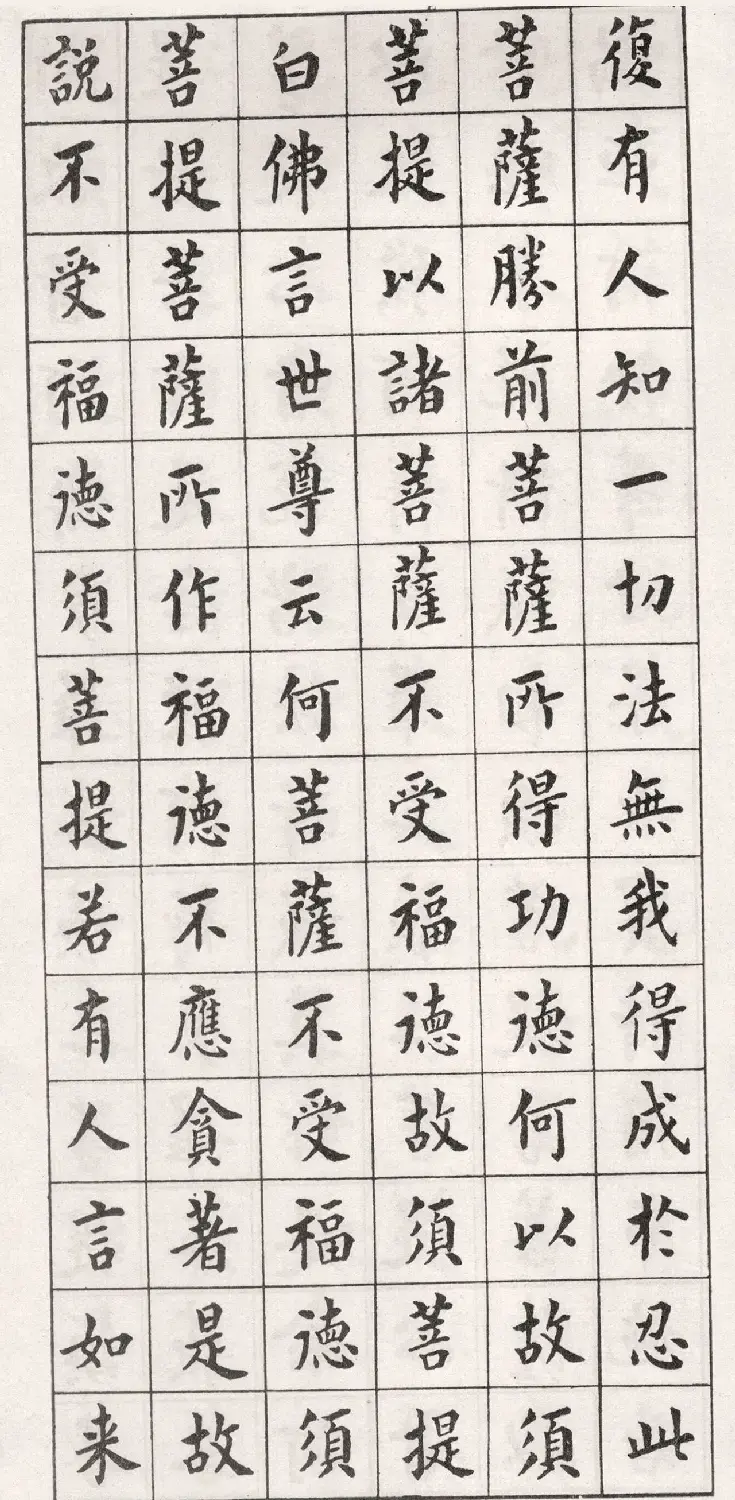 復有人知一切法無我得成於忍此
菩薩勝前菩薩所得功德何以故須
菩提以諸菩薩不受福德故須菩提
白佛言世尊云何菩薩不受福德須
菩提菩薩所作福德不應貪著是故
説不受福德須菩提若有人言如来